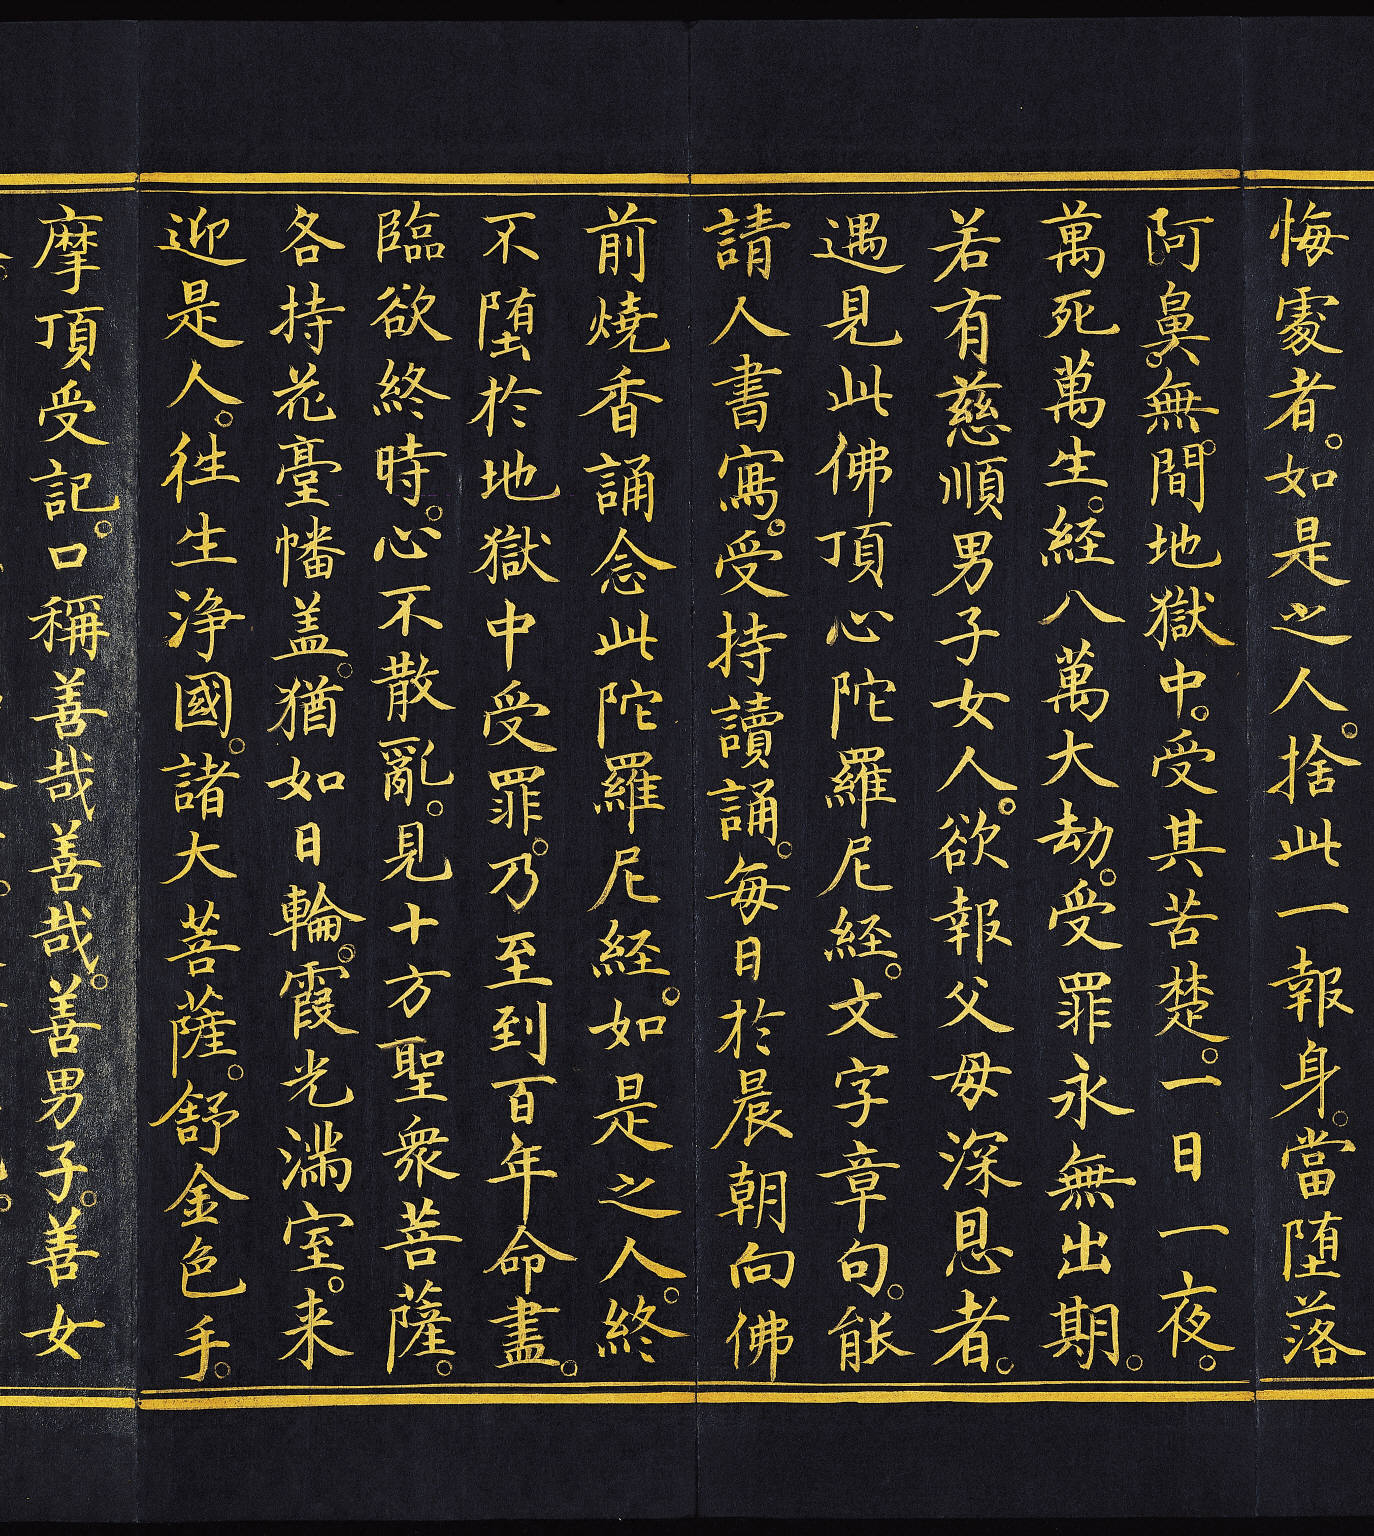 悔處者。如是之人。捨此一報身。當墮落
阿鼻。無間地獄中。受其苦楚。一日一夜。
萬死萬生。經八萬大劫。受罪永無出期。
若有慈順男子女人。欲報父母深恩者。
遇見此佛頂心陀羅尼経。文字章句。能
請人書寫。受持讀誦。每日於晨朝向佛
前燒香誦念此陀羅尼経。如是之人。終
不堕於地獄中受罪。乃至到百年命盡。
臨欲終時。心不散亂。見十方聖衆菩薩。
各持花臺幡盖。猶如日輪。霞光滿室。来
迎是人。往生淨國。諸大菩薩。舒金色手。
摩頂受記。口稱善哉善哉。善男子。善女